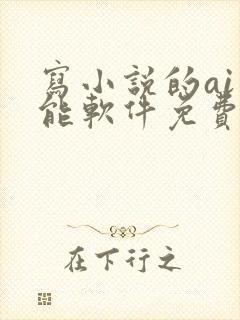 寫小說的ai
能軟件免費
在下行之